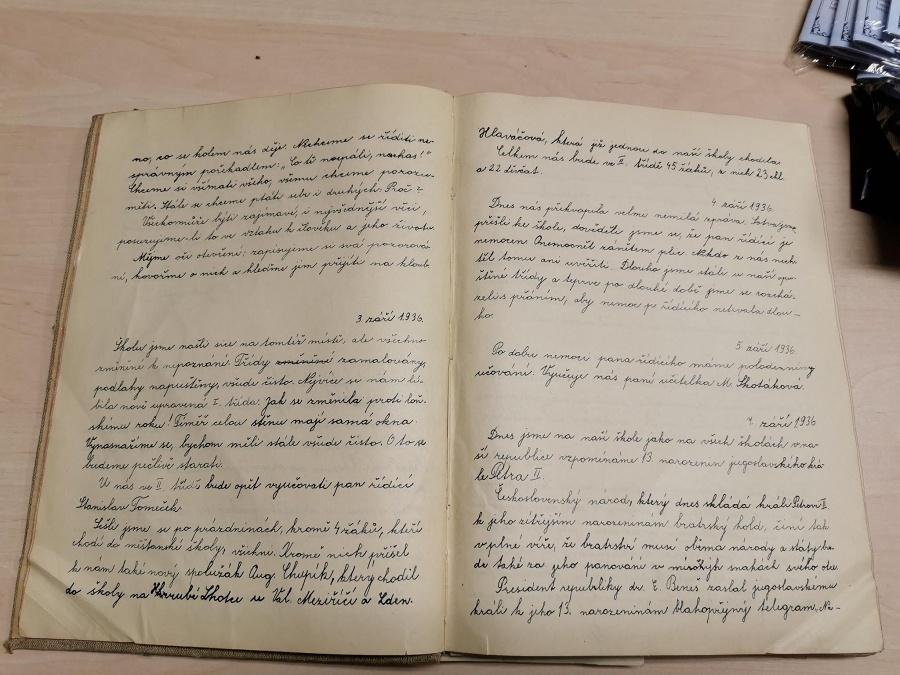 no, co se kolem nás děje. Nechceme se říditi ne-
správným pořekadlem: „Co tě nepálí, nehas!"
Chceme si všímati všeho, všemu chceme porozu-
měti. Stále se chceme ptáti sebe i druhých: Proč?
Všechno může býti zajímavé, i nejvšednější věci,
posuzujeme-li to ve vztahu k člověku a jeho životu.
Mějme oči otevřené; zapisujeme si svá pozorová
ní, hovoříme o nich a hleďme jim přijíti na kloub.
3. září 1936.
Školu jsme našli sice na tomtéž místě, ale všechno
změněné k nepoznání. Třídy zamalovány,
podlahy napuštěny, všude čisto. Nejvíce se nám lí-
bila nově upravená I. třída. Jak se změnila proti loň-
skému roku! Téměř celou stěnu mají samá okna.
Vynasnažíme se, bychom měli stále všude čisto. O to se
budeme pečlivě starati.
U nás ve II. třídě bude opět vyučovati pan řídící
Stanislav Tomeček.
Sešli jsme se po prázdninách, kromě 4 žáků, kteří
chodí do měšťanské školy, všichni. Kromě nich přišel
k nám také nový spolužák Aug. Chupík, který chodil
do školy na Lhotce se Val. Meziříčí a Zden.
Hlaváčová, která již jednou do naší školy chodila.
Celkem nás bude ve II. třídě 45 žáků, z nich 23 chl.
a 22 děvčat.
4. září 1936.
Dnes nás překvapila velmi nemilá zpráva. Sotva jsme
přišli ke škole, dověděli jsme se, že pan řídící je
nemocen. Onemocněl zánětem plic. Nikdo z nás nech
těl tomu ani uvěřiti. Dlouho jsme stáli v naší opu
štěné třídy a teprve po dlouhé době jsme se rozchá-
zeli s přáním, aby nemoc p. řídícího netrvala dlou-
ho.
5. září 1936.
Po dobu nemoci pana řídícího máme polodenní
učování. Vyučuje nás paní učitelka M. Skotáková.
7. září 1936
Dnes jsme na naší škole jako na všech školách v na-
ší republice vzpomínáme 13. narozenin jugoslávského krá
le Petra II.
Československý národ, který dnes skládá králi Petrovi II.
k jeho zítřejším narozeninám bratrský hold, činí tak
v plné víře, že bratrství musí oběma národy a státy bu-
de také za jeho panování v mírových snahách svého otce.
President republiky dr. E. Beneš zaslal jugoslavskému
králi k jeho 13. narozeninám blahopřejný telegram. Na-